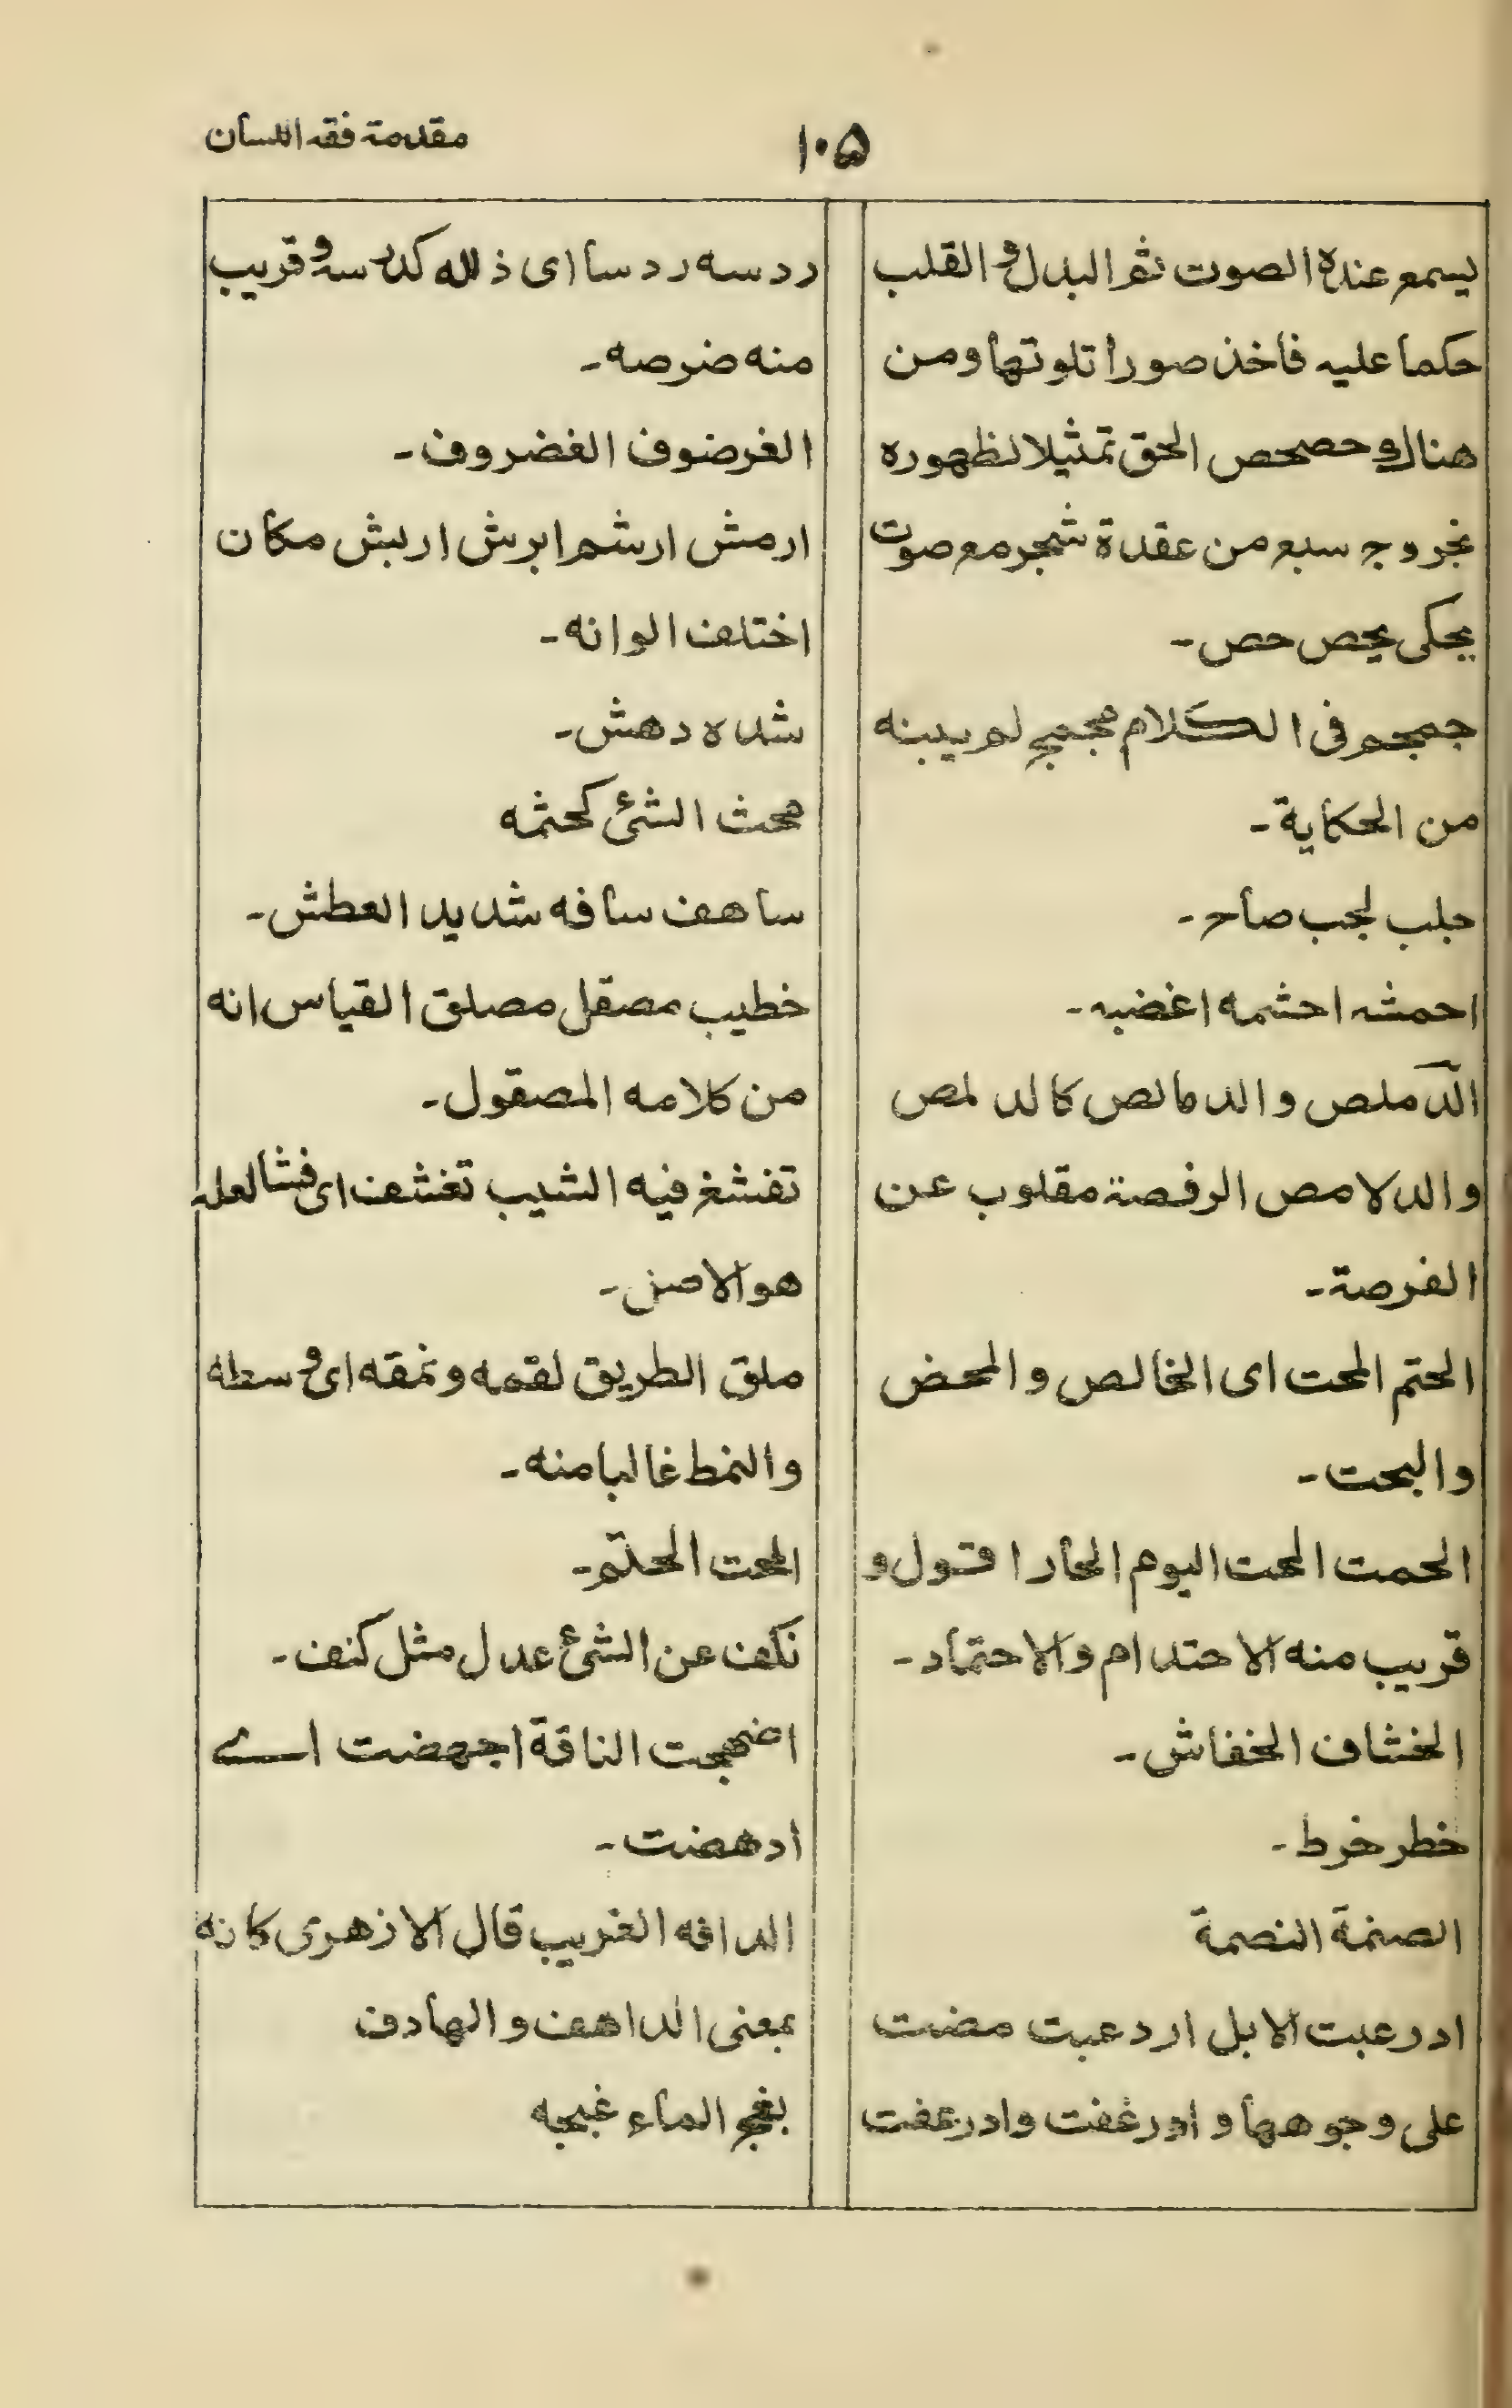 مقدمة فقه اللسان
۱۰۵
يسمع عنده الصوت ثم البدل و القلب
حكما عليه فاخذ صورا تلوتها ومن
هنالك حصحص الحق تمثيلا لظهوره
بخروج سبع من عقدة شجر مع صوت
يحكى بحص حص۔
جمجم فى الكلام مجمج لم يبينه
من الحكاية۔
جلب لجب صاح۔
احمشه احشمه اغضبه۔
الدملص والدمالص كالدلمص
والدلامص الرفصة مقلوب عن
الفرصة۔
الحتم المحت اى الخالص والمحض
والبحت۔
الحمت المحت اليوم الحار اقول و
قريب منه الاحتدام والاحتماد۔
الخشاف الخفاش۔
خطر خرط۔
الصنمة النصمة
ادرعبت الابل اردعبت مضت
على وجوهها و ادرغفت وادرعفت
ردسه ردسا اى ذلله كدرسه وقريب
منه ضرصه۔
الغرضوف الغضروف۔
ارمش ارشم ابرش اربش مكان
اختلف الوانه۔
شده دهش۔
محث الشئ كحثمه
ساهف سافه شديد العطش۔
خطيب مصقل مصلق القياس انه
من كلامه المصقول۔
تفشغ فيه الشيب تغشف اى فشا لعله
هو الاصل۔
ملق الطريق لقمه ونمقه اى وسطه
والنمط غالبا منه۔
المحت الحلتم۔
نكف عن الشئ عدل مثل كنف۔
اضهجت الناقة اجهضت اے
ادهضت۔
الدافه الغريب قال الازهرى كانه
بمعنى الداهف والهادف
بغج الماء غبجه